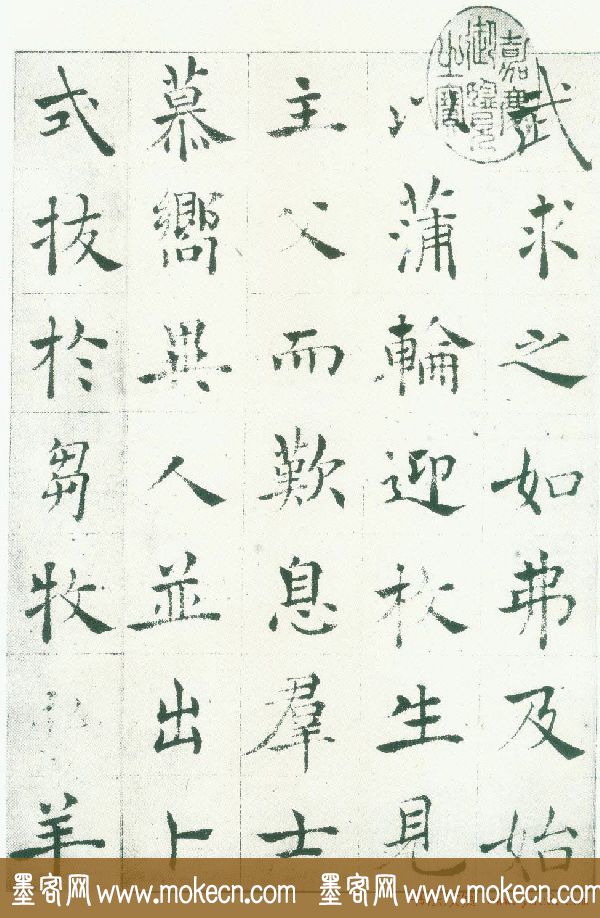 嘉慶御覽之寶
武求之如弗及始
以蒲輪迎枚生見
主父而歎息羣士
慕嚮異人並出卜
式拔於芻牧羊
墨客网 www.mokecn.com 墨客网 www.mokecn.com